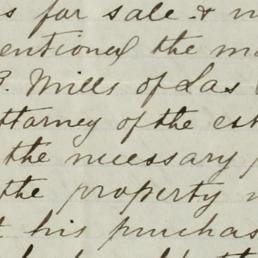 s for sale & n
entioned the ma
B. Mills of Las
ttorney of the est
the necessary
the property
t his purchas